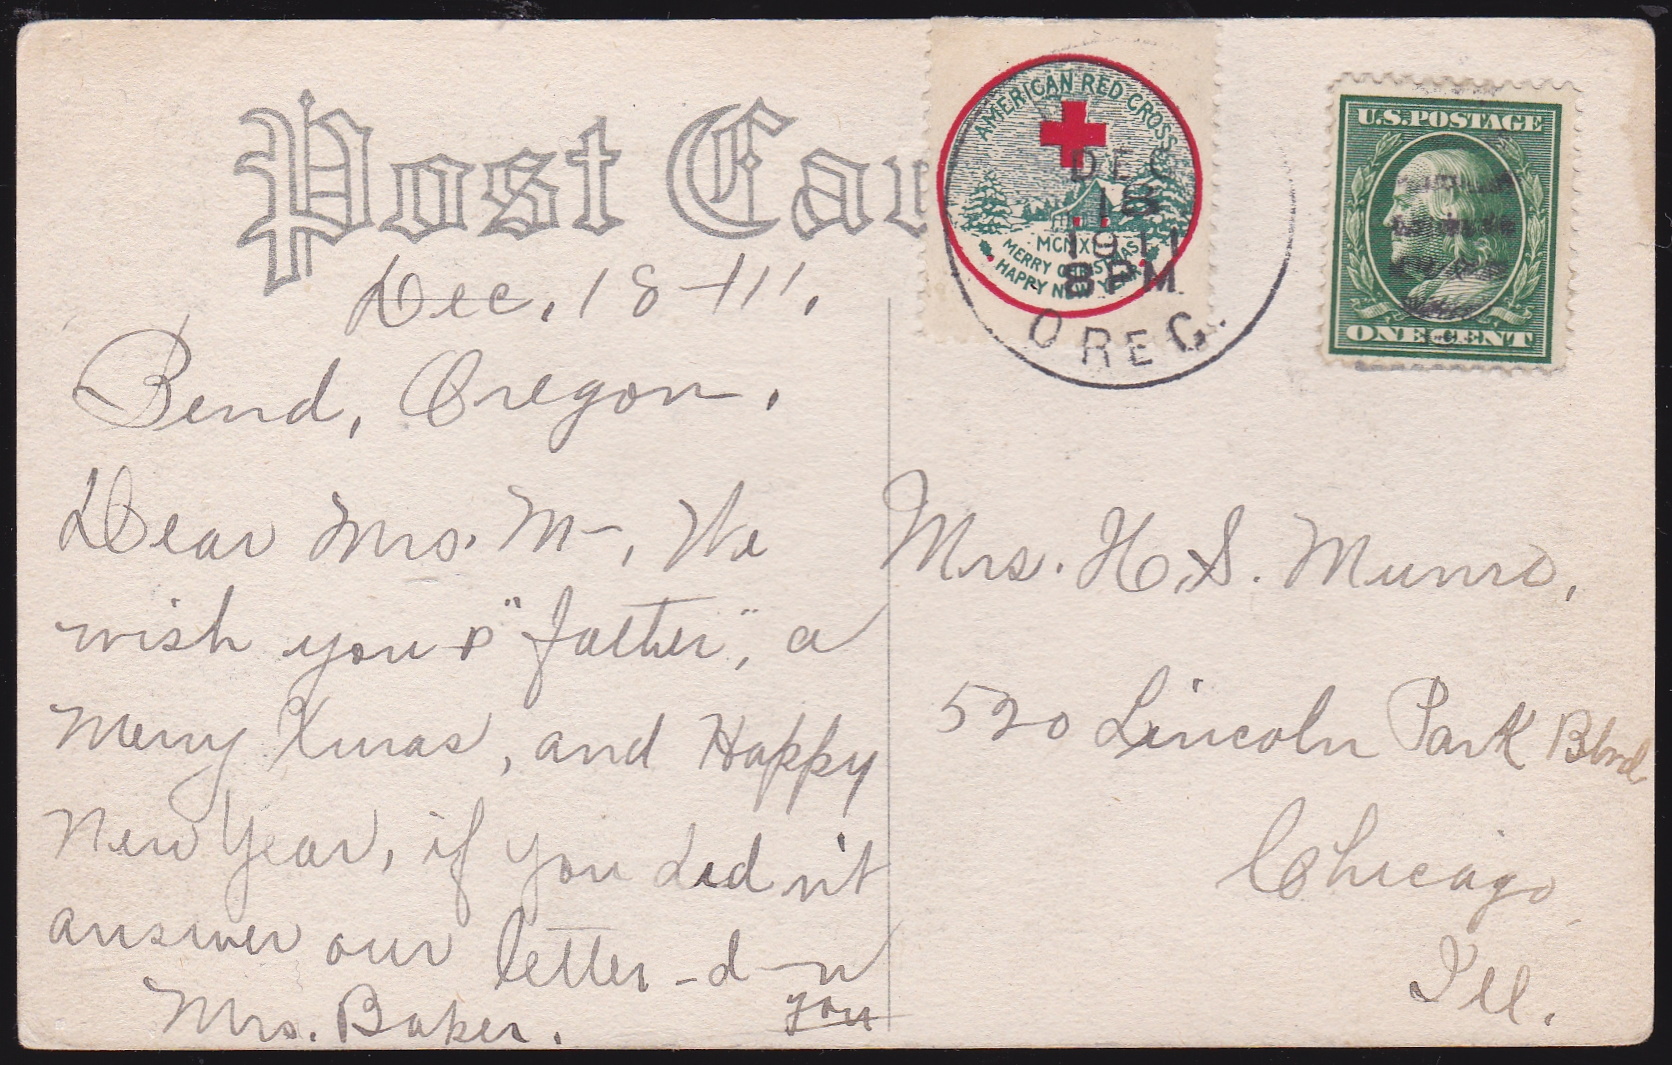 Post Car
AMERICAN RED CROSS
MERRY CHRISTMAS
HAPPY NEW YEAR
DEC
18
1911
8 PM
OREG.
U.S. POSTAGE
ONE CENT
Dec. 18-11.
Bend, Oregon.
Dear Mrs. M-, We
wish you & "father", a
Merry Xmas, and Happy
New Year, if you did n't
answer our letter -d-n
you
Mrs. Baker.
Mrs. H.S. Munro,
520 Lincoln Park Blvd
Chicago
Ill.